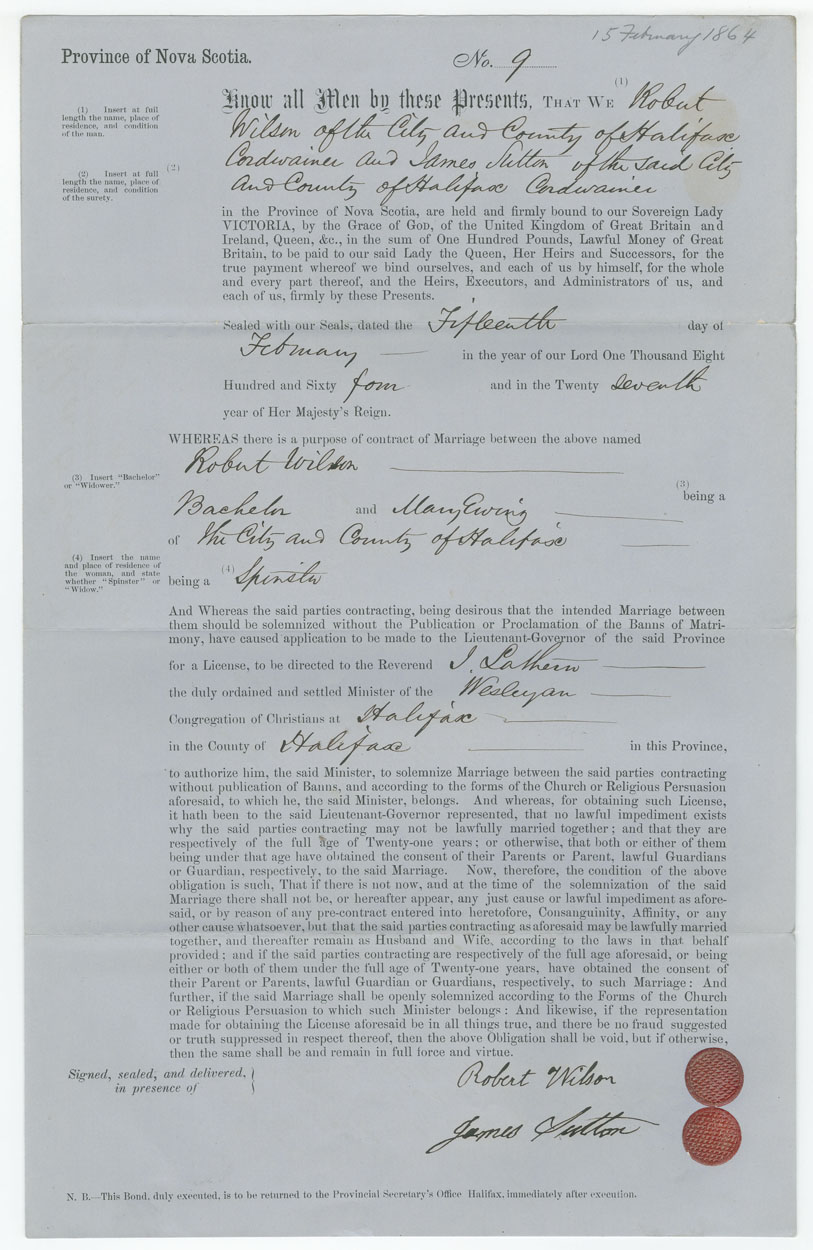 15 February 1864
Province of Nova Scotia.
No. 9
(1)
Know all Men by these Presents, THAT WE Robert
Wilson of the City and County of Halifax
Cordwainer and James Sutton of the said City
and County of Halifax Cordwainer
(1) Insert at full
length the name, place of
residence, and condition
of the man.
(2)
(2) Insert at full
length the name, place of
residence, and condition
of the surety.
in the Province of Nova Scotia, are held and firmly bound to our Sovereign Lady
VICTORIA, by the Grace of GOD, of the United Kingdom of Great Britain and
Ireland, Queen, &c., in the sum of One Hundred Pounds, Lawful Money of Great
Britain, to be paid to our said Lady the Queen, Her Heirs and Successors, for the
true payment whereof we bind ourselves, and each of us by himself, for the whole
and every part thereof, and the Heirs, Executors, and Administrators of us, and
each of us, firmly by these Presents.
Sealed with our Seals, dated the Fifteenth day of
February in the year of our Lord One Thousand Eight
Hundred and Sixty four and in the Twenty seventh
year of Her Majesty's Reign.
WHEREAS there is a purpose of contract of Marriage between the above named
Robert Wilson
(3) Insert "Bachelor"
or "Widower."
(3)
being a
Bachelor and Mary Ewing
of the City and County of Halifax
(4) Insert the name
and place of residence of
the woman, and state
whether "Spinster" or
"Widow."
being a (4) Spinster
And Whereas the said parties contracting, being desirous that the intended Marriage between
them should be solemnized without the Publication or Proclamation of the Banns of Matri-
mony, have caused application to be made to the Lieutenant-Governor of the said Province
for a License, to be directed to the Reverend J. Lathern
the duly ordained and settled Minister of the Wesleyan
Congregation of Christians at Halifax
in the County of Halifax in this Province,
to authorize him, the said Minister, to solemnize Marriage between the said parties contracting
without publication of Banns, and according to the forms of the Church or Religious Persuasion
aforesaid, to which he, the said Minister, belongs. And whereas, for obtaining such License,
it hath been to the said Lieutenant-Governor represented, that no lawful impediment exists
why the said parties contracting may not be lawfully married together; and that they are
respectively of the full age of Twenty-one years; or otherwise, that both or either of them
being under that age have obtained the consent of their Parents or Parent, lawful Guardians
or Guardian, respectively, to the said Marriage. Now, therefore, the condition of the above
obligation is such, That if there is not now, and at the time of the solemnization of the said
Marriage there shall not be, or hereafter appear, any just cause or lawful impediment as afore-
said, or by reason of any pre-contract entered into heretofore, Consanguinity, Affinity, or any
other cause whatsoever, but that the said parties contracting as aforesaid may be lawfully married
together, and thereafter remain as Husband and Wife, according to the laws in that behalf
provided; and if the said parties contracting are respectively of the full age aforesaid, or being
either or both of them under the full age of Twenty-one years, have obtained the consent of
their Parent or Parents, lawful Guardian or Guardians, respectively, to such Marriage: And
further, if the said Marriage shall be openly solemnized according to the Forms of the Church
or Religious Persuasion to which such Minister belongs: And likewise, if the representation
made for obtaining the License aforesaid be in all things true, and there be no fraud suggested
or truth suppressed in respect thereof, then the above Obligation shall be void, but if otherwise,
then the same shall be and remain in full force and virtue.
Signed, sealed, and delivered,
in presence of
Robert Wilson
James Sutton
N. B.—This Bond, duly executed, is to be returned to the Provincial Secretary's Office Halifax, immediately after execution.